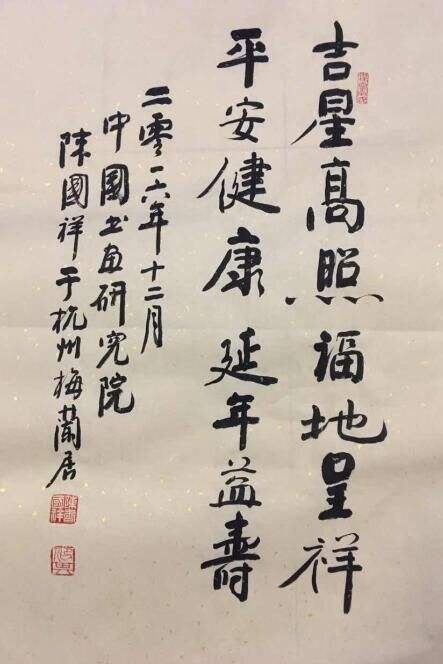 吉星高照福地呈祥
平安健康延年益壽
二零一六年十二月
中國书画研究院
陳國祥于杭州梅蘭居